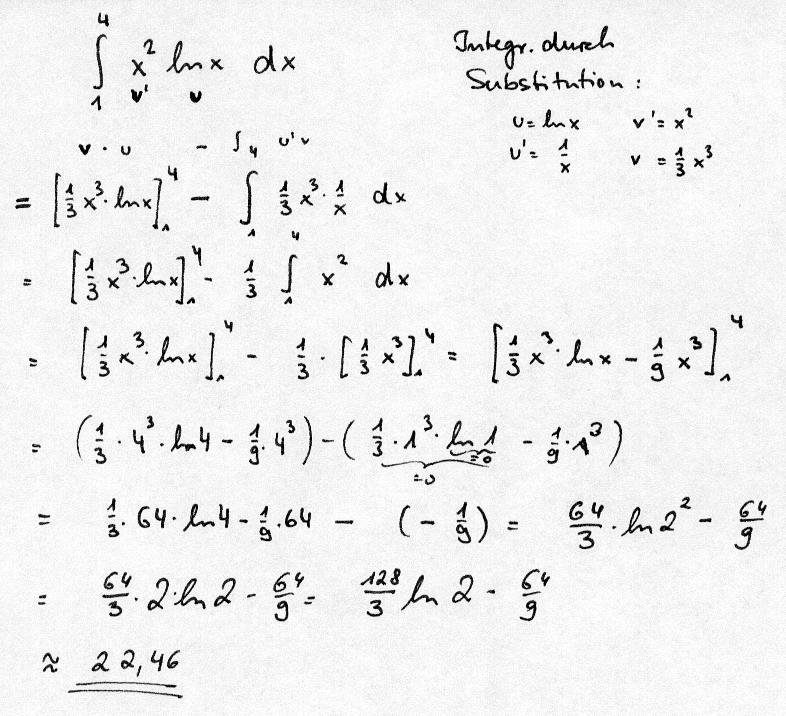 ∫₁⁴ x² ln x dx
v' u
Integr. durch
Substitution :
u = ln x v' = x²
u' = 1/x v = 1/3 x³
v · u - ∫ u'v
= [1/3 x³ · ln x]₁⁴ - ∫₁⁴ 1/3 x³ · 1/x dx
= [1/3 x³ · ln x]₁⁴ - 1/3 ∫₁⁴ x² dx
= [1/3 x³ · ln x]₁⁴ - 1/3 · [1/3 x³]₁⁴ = [1/3 x³ · ln x - 1/9 x³]₁⁴
= (1/3 · 4³ · ln 4 - 1/9 · 4³) - (1/3 · 1³ · ln 1 - 1/9 · 1³)
=0 =0
= 1/3 · 64 · ln 4 - 1/9 · 64 - (- 1/9) = 64/3 · ln 2² - 64/9
= 64/3 · 2 · ln 2 - 64/9 = 128/3 ln 2 - 64/9
≈ 22,46